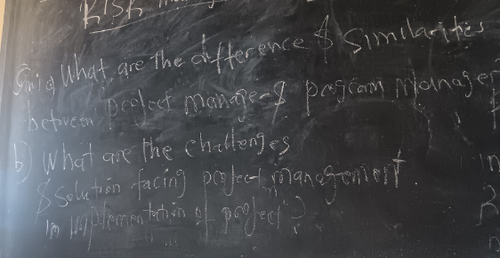 RISK
What are the difference & Similarities
between project manager & program Manager
b) What are the challenges
& solution facing project management
in implementation of project?